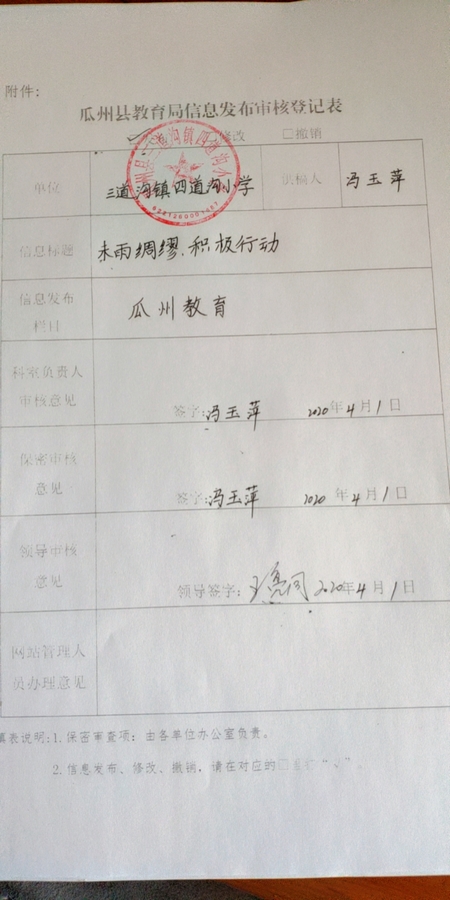 附件：
瓜州县教育局信息发布审核登记表
修改 □撤销
单位 三道沟镇四道沟小学 供稿人 冯玉萍
信息标题 未雨绸缪、积极行动
信息发布
栏目 瓜州教育
科室负责人
审核意见 签字：冯玉萍 2020年4月1日
保密审核
意见 签字：冯玉萍 2020年4月1日
领导审核
意见 领导签字： 2020年4月1日
网站管理人
员办理意见
填表说明：1.保密审查项：由各单位办公室负责。
2.信息发布、修改、撤销，请在对应的□ “√”。